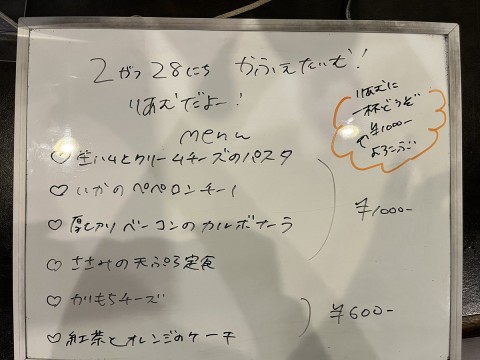 2がつ28にち かふぇたいむ!
りあむだよー!
menu
♡ 生ハムとクリームチーズのパスタ
♡ いかのペペロンチーノ
♡ 厚切りベーコンのカルボナーラ
♡ ささみの天ぷら定食
¥1000-
♡ かりもちチーズ
♡ 紅茶とオレンジのケーキ
¥600-
りあむに
一杯どうぞ
で¥1000-
よろこぶ